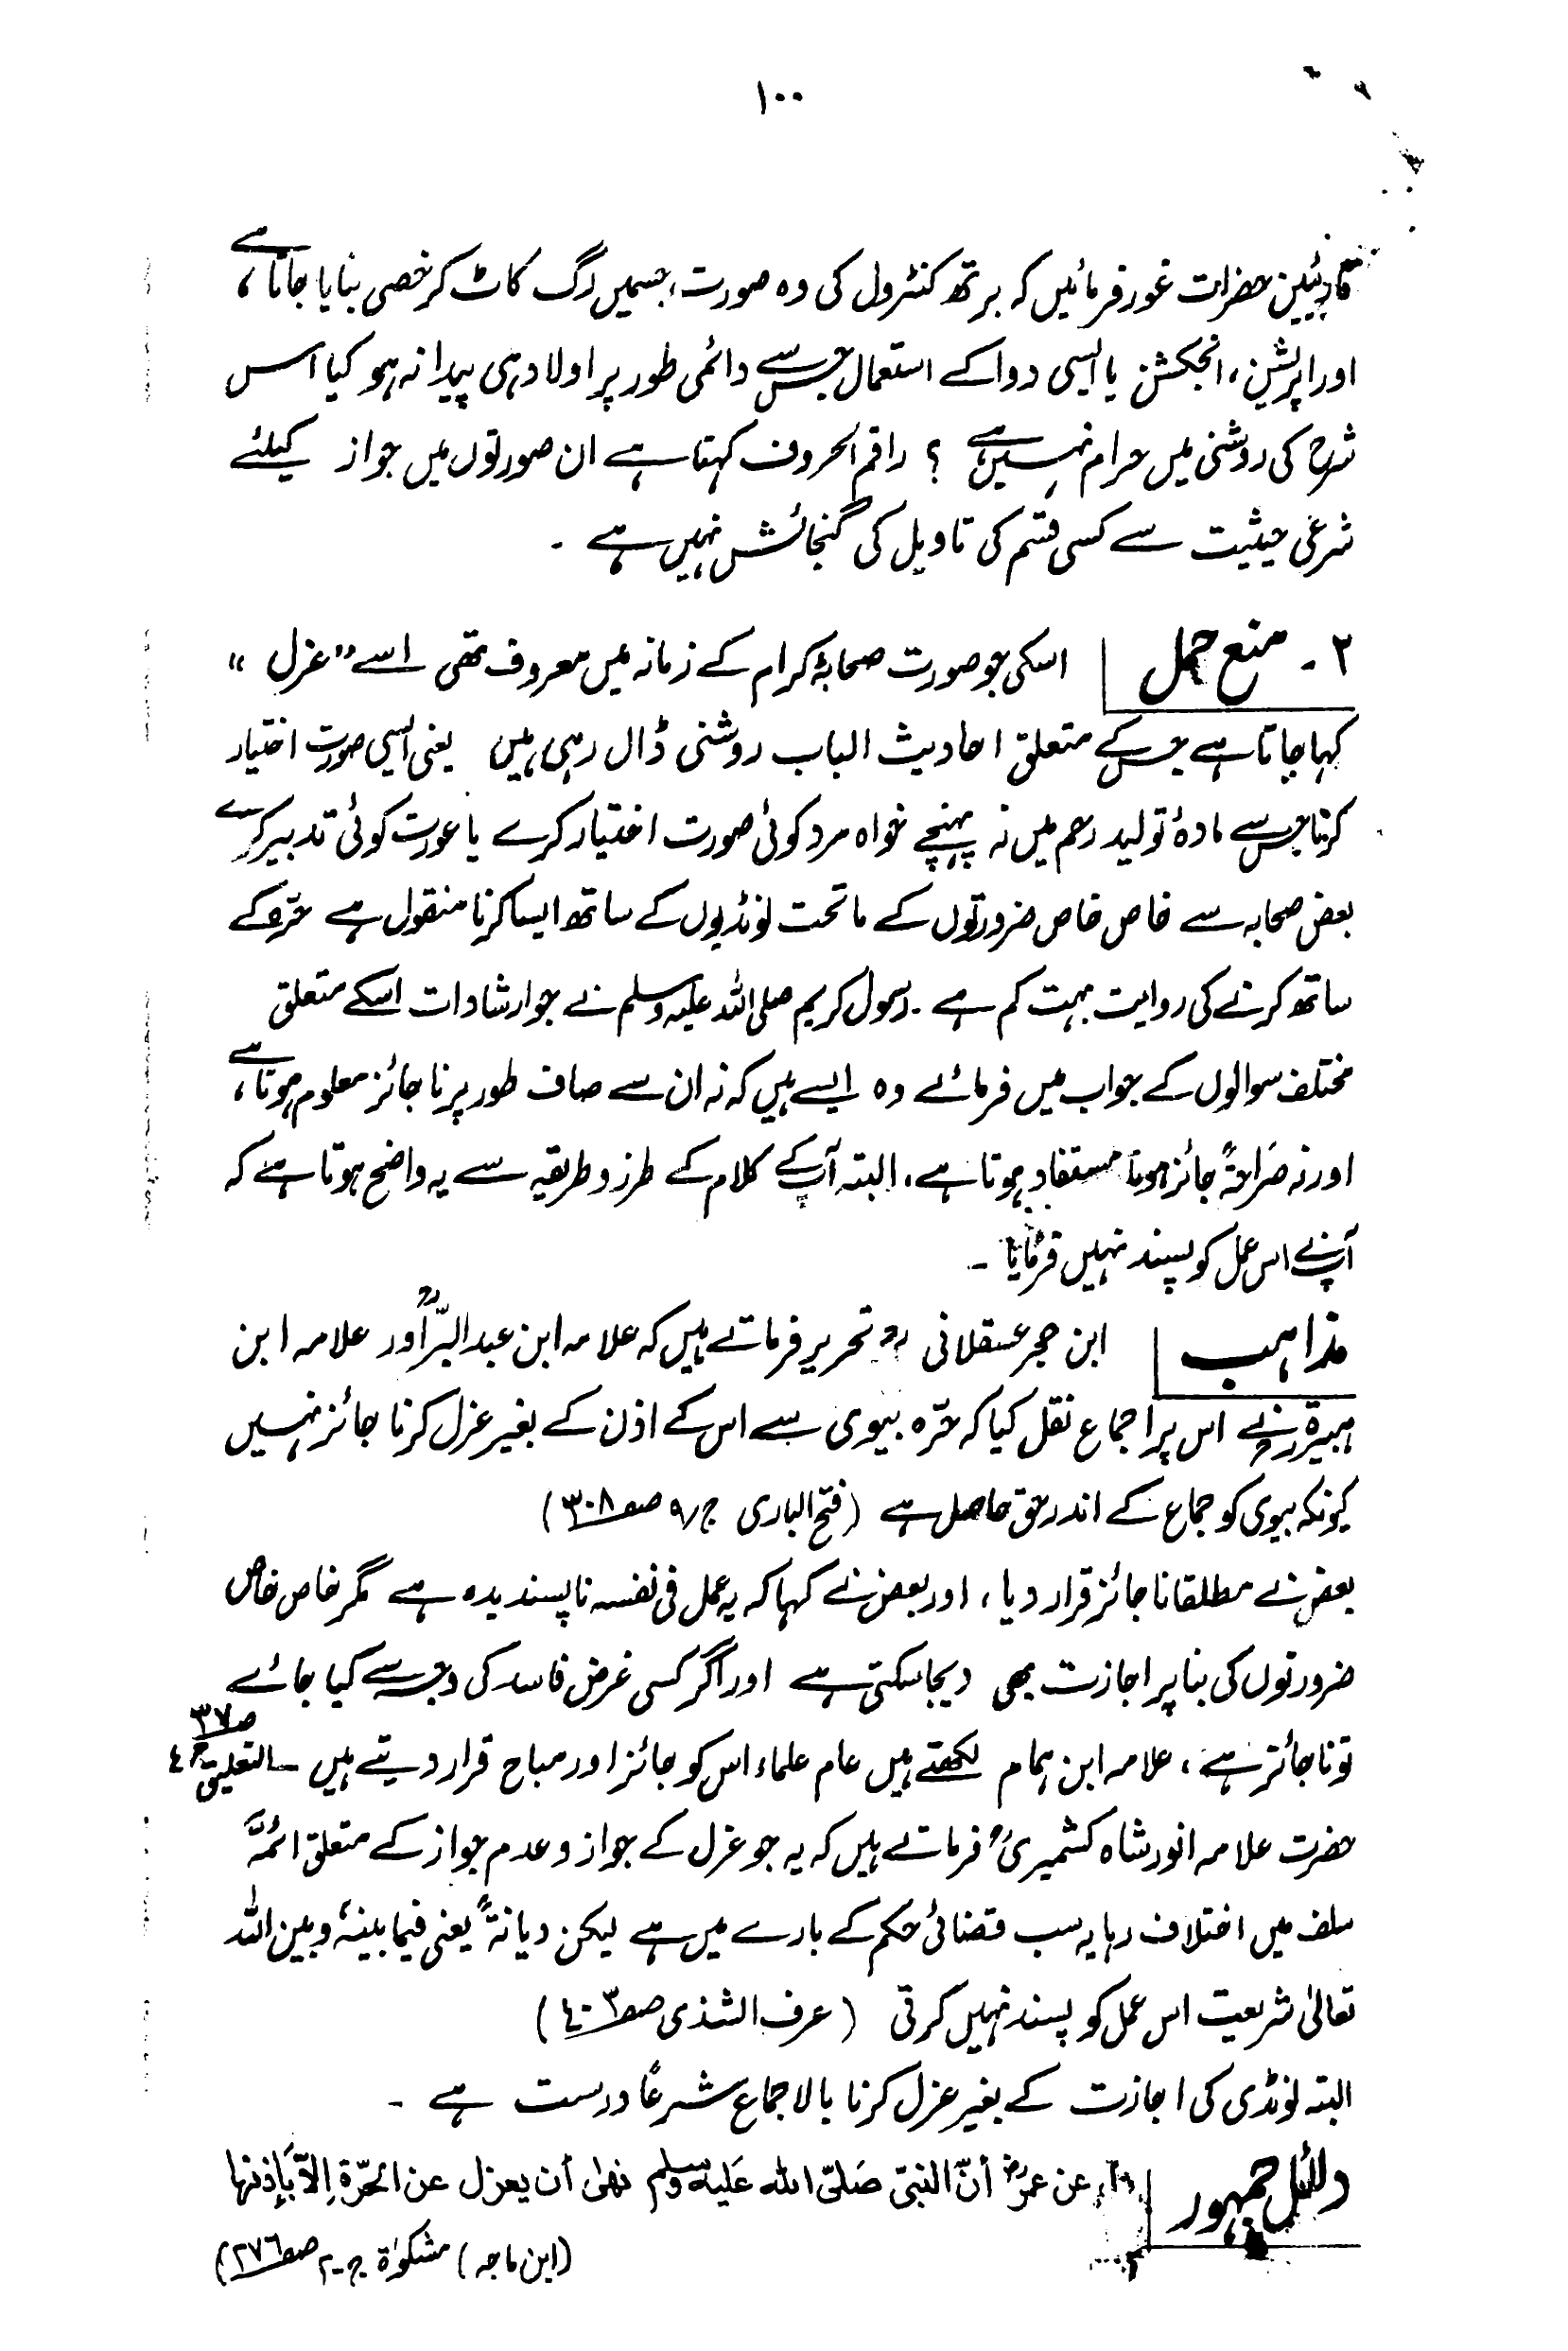 ۱۰۰
قارئین حضرات غور فرمائیں کہ برتھ کنٹرول کی وہ صورت، جسمیں رگ کاٹ کر خصی بنایا جاتا ہے،
اور اپریشن، انجکشن یا ایسی دوا کے استعمال جس سے دائمی طور پر اولاد ہی پیدا نہ ہو کیا اس
شرح کی روشنی میں حرام نہیں ہے ؟ راقم الحروف کہتا ہے ان صورتوں میں جواز کیلئے
شرعی حیثیت سے کسی قسم کی تاویل کی گنجائش نہیں ہے ۔
۲ - منع حمل اسکی جو صورت صحابۂ کرام کے زمانہ میں معروف تھی اسے "عزل"
کہا جاتا ہے جس کے متعلق احادیث الباب روشنی ڈال رہی ہیں یعنی ایسی صورت اختیار
کرنا جس سے مادۂ تولید رحم میں نہ پہنچے خواہ مرد کوئی صورت اختیار کرے یا عورت کوئی تدبیر کرے
بعض صحابہ سے خاص خاص ضرورتوں کے ماتحت لونڈیوں کے ساتھ ایسا کرنا منقول ہے حرّہ کے
ساتھ کرنے کی روایت بہت کم ہے ۔ رسول کریم صلی اللہ علیہ وسلم نے جو ارشادات اسکے متعلق
مختلف سوالوں کے جواب میں فرمائے وہ ایسے ہیں کہ نہ ان سے صاف طور پر ناجائز معلوم ہوتا ہے،
اور نہ صَراحۃً جائز ہونا مستفاد ہوتا ہے، البتہ آپ کے کلام کے طرز و طریقہ سے یہ واضح ہوتا ہے کہ
آپ نے اس عمل کو پسند نہیں فرمایا ۔
مذاہب ابن حجر عسقلانی رح تحریر فرماتے ہیں کہ علامہ ابن عبد البرّ رح اور علامہ ابن
ہبیرۃ رح نے اس پر اجماع نقل کیا کہ حرّہ بیوی سے اس کے اذن کے بغیر عزل کرنا جائز نہیں
کیونکہ بیوی کو جماع کے اندر حق حاصل ہے (فتح الباری ج/۹ صـ۳۰۸)
بعض نے مطلقا ناجائز قرار دیا، اور بعض نے کہا کہ یہ عمل فی نفسہ ناپسندیدہ ہے مگر خاص خاص
ضرورتوں کی بنا پر اجازت بھی دیجاسکتی ہے اور اگر کسی غرض فاسد کی وجہ سے کیا جائے
تو ناجائز ہے، علامہ ابن ہمام لکھتے ہیں عام علماء اس کو جائز اور مباح قرار دیتے ہیں ۔ التعلیق ج٤ صـ۳۷
حضرت علامہ انور شاہ کشمیری رح فرماتے ہیں کہ یہ جو عزل کے جواز و عدم جواز کے متعلق ائمۂ
سلف میں اختلاف رہا یہ سب قضائی حکم کے بارے میں ہے لیکن دیانۃً یعنی فیما بینہٗ و بین اللہ
تعالیٰ شریعت اس عمل کو پسند نہیں کرتی (عرف الشذی صـ٤۰۳)
البتہ لونڈی کی اجازت کے بغیر عزل کرنا بالاجماع شرعًا درست ہے ۔
دلائل جمہور عن عمر رض أنّ النبیّ صَلیّ اللہ عَلیہ وسلم نھیٰ أن یعزل عن الحرّۃ إلاّ بإذنہا
(ابن ماجہ) مشکوٰۃ ج-۲ صـ۲۷٦)